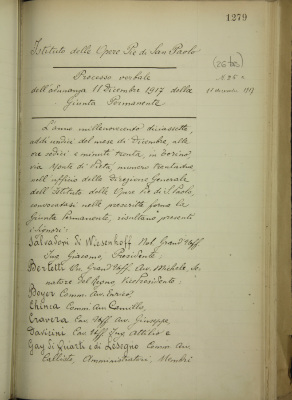 1279
Istituto delle Opere Pie di San Paolo
(26 bis)
Processo verbale
N. 25
dell'adunanza 11 Dicembre 1917 della
11 dicembre 1917
Giunta Permanente
L'anno millenovecento diciassette,
addì undici del mese di Dicembre, alle
ore sedici e minuti trenta, in Torino,
via Monte di Pietà, numero trentadue
nell'ufficio della Direzione Generale
dell'Istituto delle Opere Pie di S. Paolo,
convocatasi nelle prescritte forme la
Giunta Permanente, risultano presenti
i Signori:
Salvadori di Wiesenhoff Nob. Grand'Uff.
Ing. Giacomo, Presidente
Bertetti On. Grand'Uff. Avv. Michele, Se-
natore del Regno, Vicepresidente
Boyer Comm. Avv. Enrico,
Chinea Comm. Avv. Camillo,
Cravera Cav. Uff. Avv. Giuseppe,
Cav. Uff. Ing. Attilio e
Gay di Quarti e di Lesegno Comm. Avv.
Callisto, Amministratori, Membri